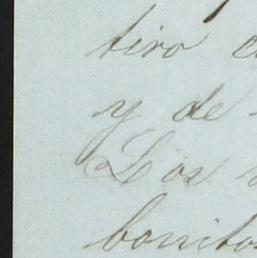 tiro
y de
Los
bonitos